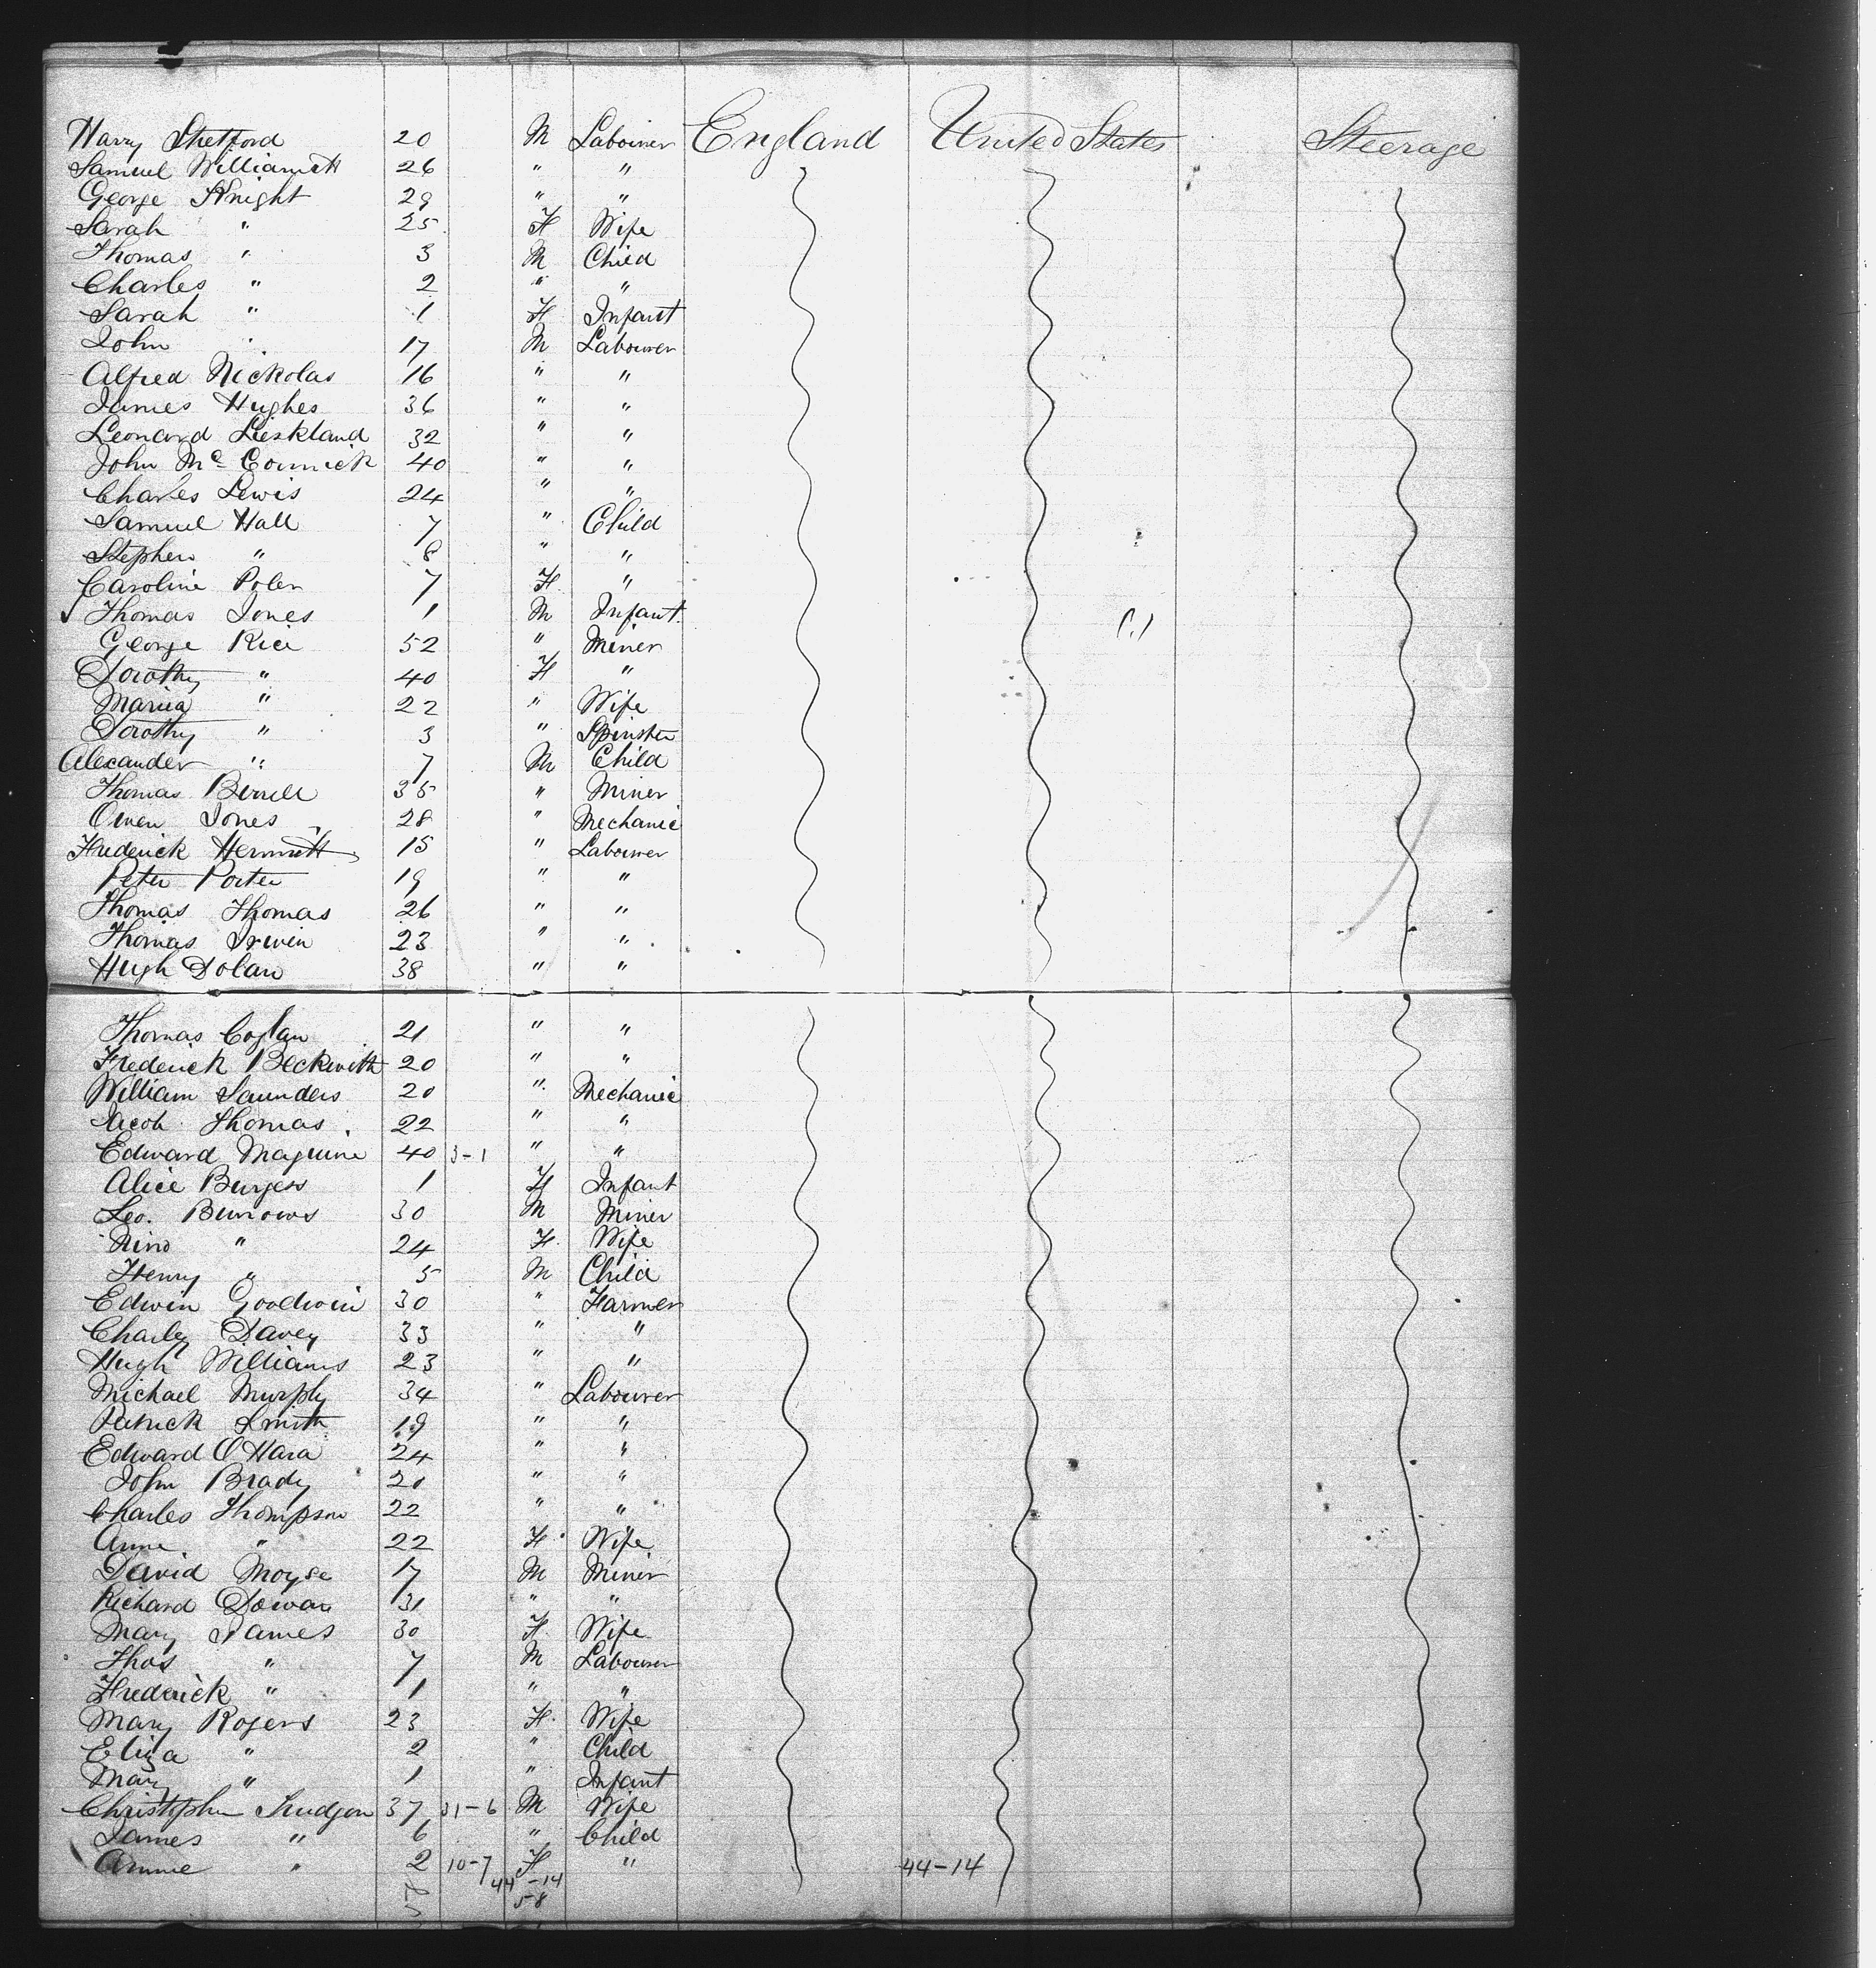 Harry Stretford 20 M Labourer England United States Steerage
Samuel Williamett 26 " "
George Knight 29 " "
Sarah " 25 F Wife
Thomas " 3 M Child
Charles " 2 " "
Sarah " 1 F Infant
John " 17 M Labourer
Alfred Nickolas 16 " "
James Hughes 36 " "
Leonard 32 " "
John Mc Cormick 40 " "
Charles Lewis 24 " "
Samuel Hall 7 " Child
Stephen " 8 " "
Caroline Polen 7 F "
Thomas Jones 1 M Infant
George Rice 52 " Miner
Dorothy " 40 F "
Maria " 22 " Wife
Dorothy " 3 " Spinster
Alexander " 7 M Child
Thomas 35 " Miner
Owen Jones 28 " Mechanic
Frederick 15 " Labourer
Peter Porter 19 " "
Thomas Thomas 26 " "
Thomas Irwin 23 " "
Hugh Dolan 38 " "
Thomas Coglan 21 " "
Frederick Beckwith 20 " "
William Saunders 20 " Mechanic
Jacob Thomas 22 " "
Edward Maguire 40 3-1 " "
Alice Burgess 1 F Infant
Leo. Burrows 30 M Miner
" 24 F Wife
Henry " 5 M Child
Edwin Goodwin 30 " Farmer
Charley Davey 33 " "
Hugh Williams 23 " "
Michael Murphy 34 " Labourer
Patrick Smith 19 " "
Edward O'Hara 24 " "
John Brady 20 " "
Charles Thompson 22 " "
Anne " 22 F Wife
David Moyse 17 M Miner
Richard Dowan 31 " "
Mary James 30 F Wife
Thos " 7 M Labourer
Frederick " 1 " "
Mary Rogers 23 F Wife
Eliza " 2 " Child
Mary " 1 " Infant
Christopher 37 31-6 M Wife
James " 6 " Child
Annie " 2 10-7 F " 44-14
44-14
58 58